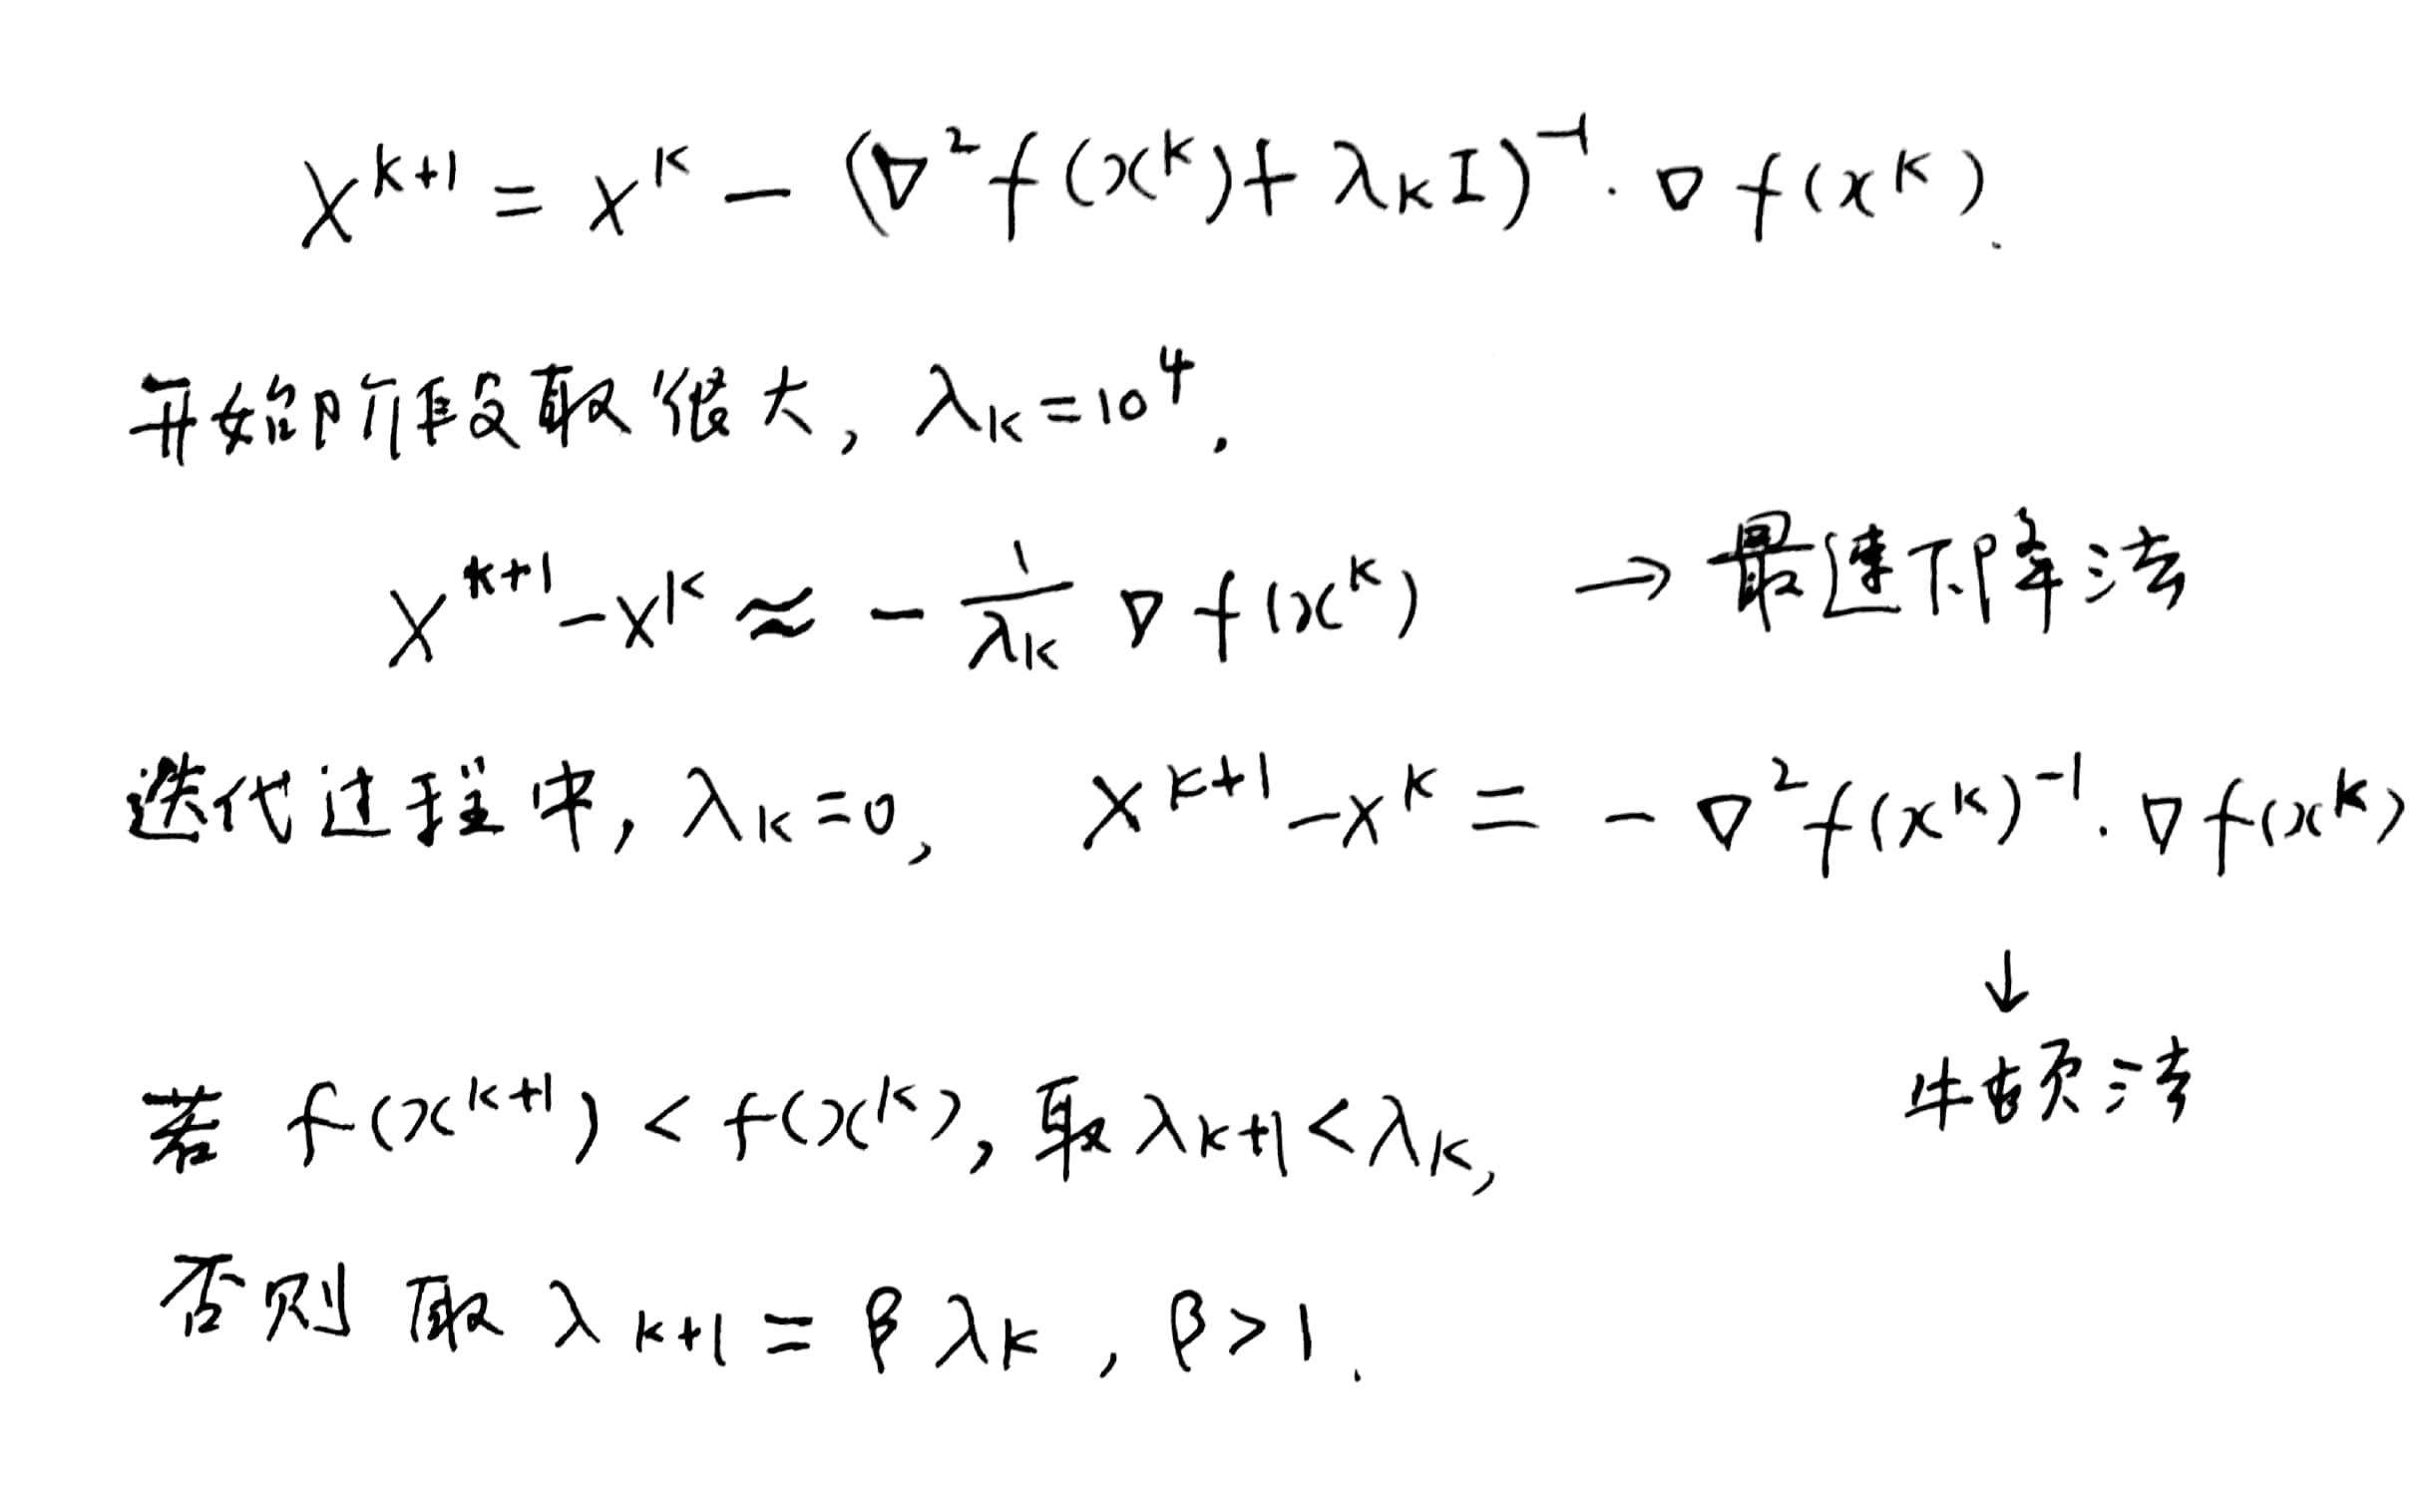 x^{k+1} = x^k - (∇²f(x^k) + λ_k I)^{-1} · ∇f(x^k).
开始阶段取很大, λ_k = 10^4.
x^{k+1} - x^k ≈ - \frac{1}{λ_k} ∇f(x^k) → 最速下降法
迭代过程中, λ_k = 0, x^{k+1} - x^k = - ∇²f(x^k)^{-1} · ∇f(x^k)
↓
牛顿法
若 f(x^{k+1}) < f(x^k), 取 λ_{k+1} < λ_k,
否则 取 λ_{k+1} = β λ_k, β > 1.